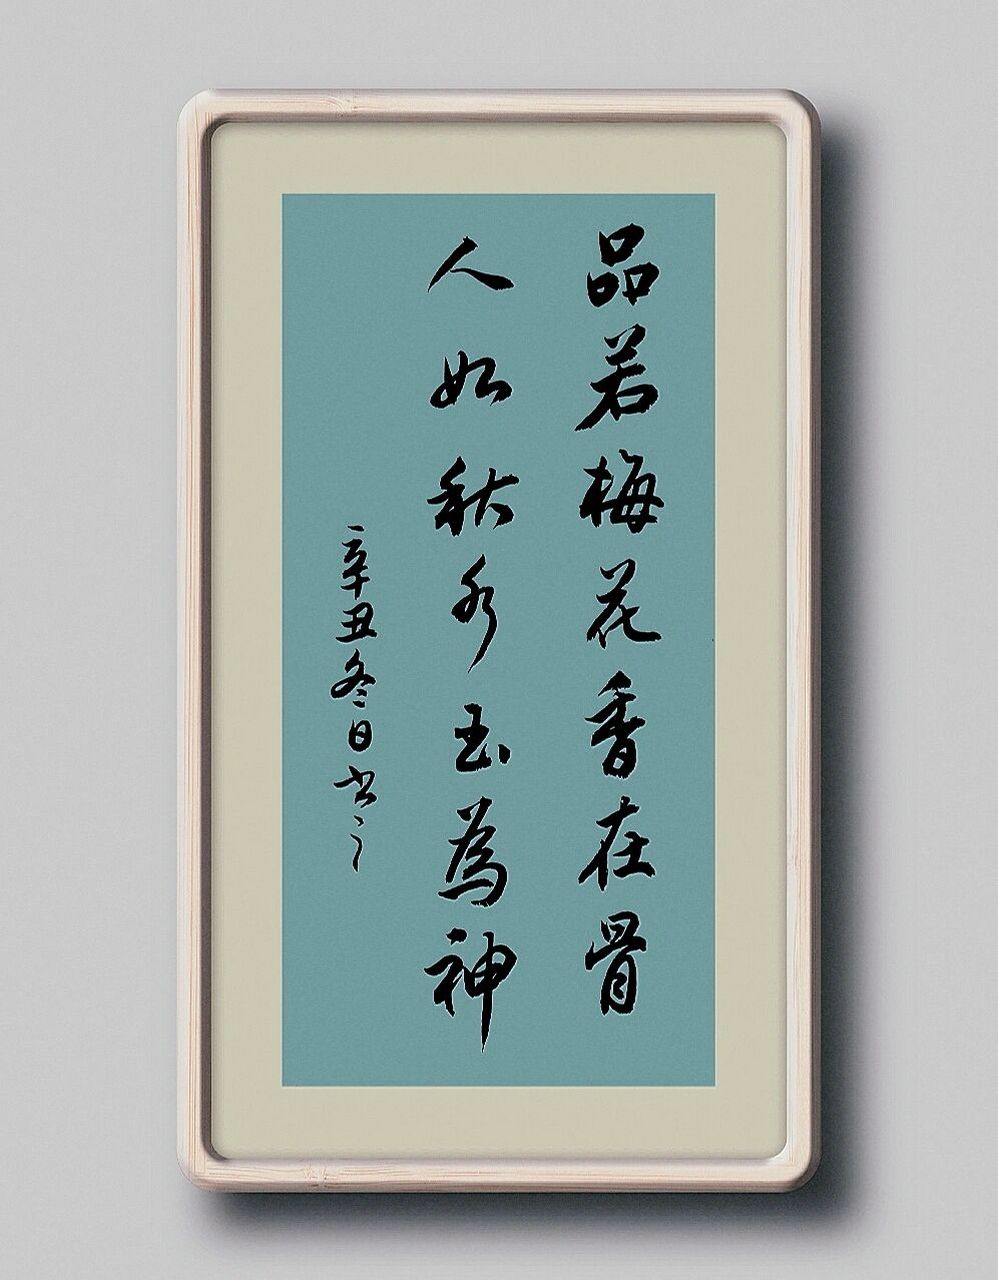 品若梅花香在骨
人如秋水玉為神
辛丑冬日书之